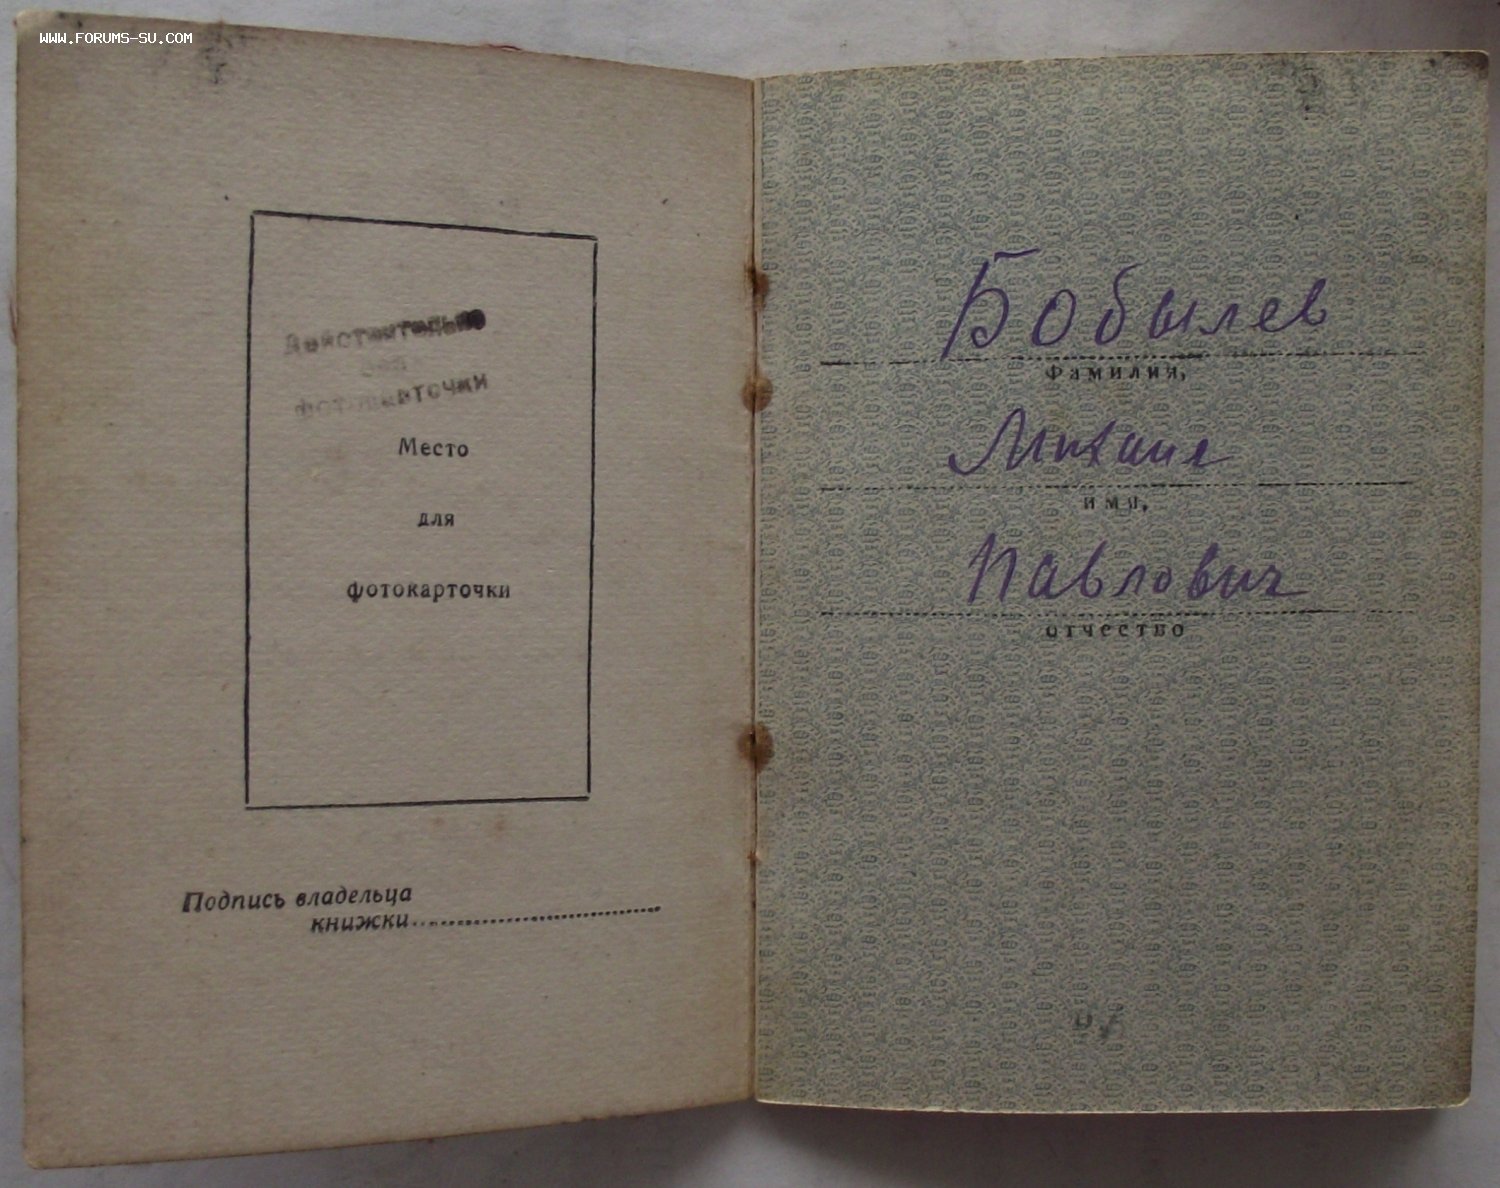 WWW.FORUMS-SU.COM
Действительно
без
фотокарточки
Место
для
фотокарточки
Подпись владельца
книжки
Бобылев
Фамилия,
Михаил
имя,
Павлович
отчество